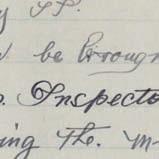 be Brough
Inspecto
ing the. m